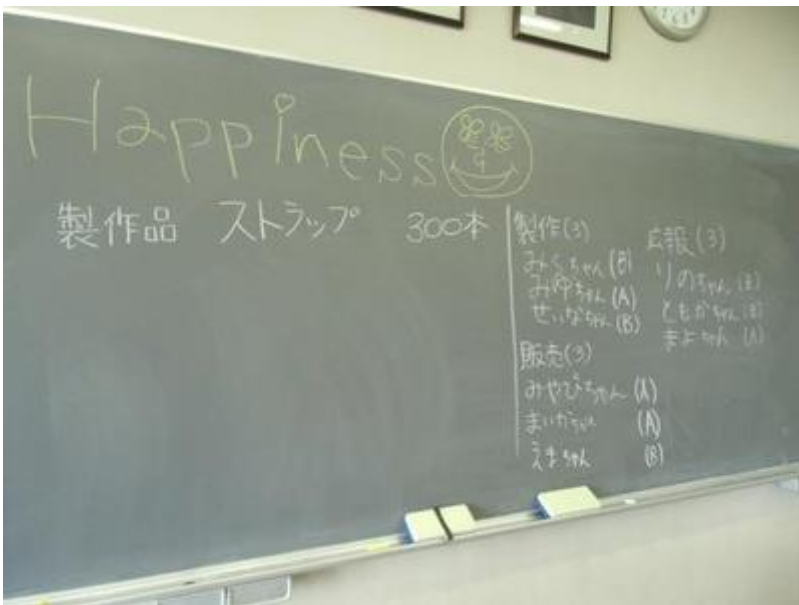 Happiness
製作品 ストラップ 300本
製作(3)
みらちゃん(B)
みゆちゃん(A)
せいなちゃん(B)
販売(3)
みやびちゃん(A)
まいかちゃん(A)
えまちゃん(B)
広報(3)
りのちゃん(B)
ともかちゃん(B)
まよちゃん(A)